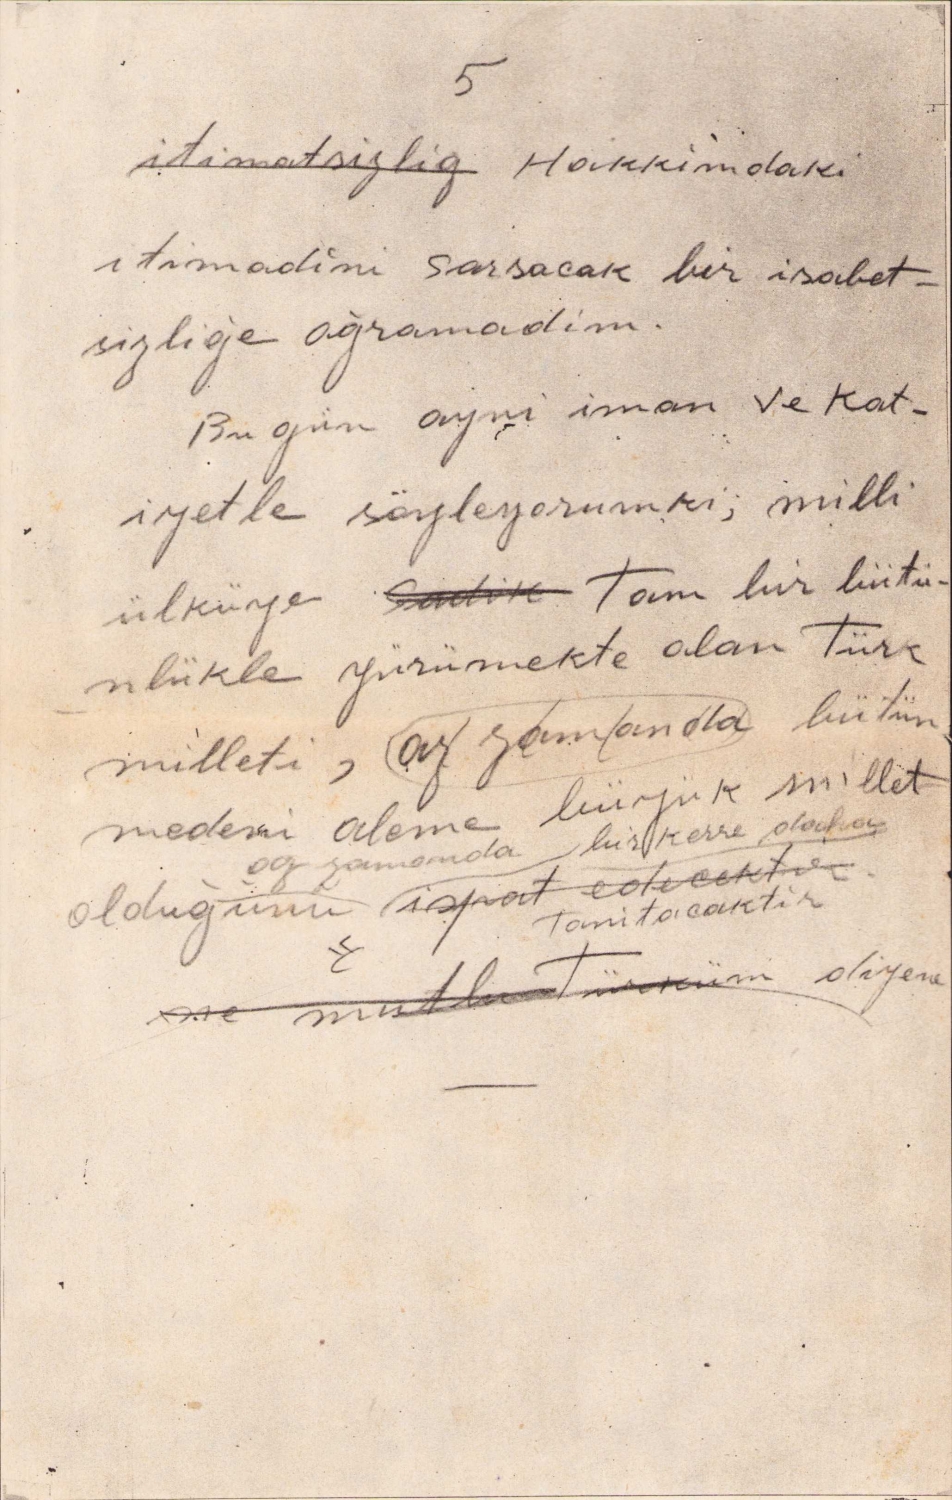 5
itimatsizlig Hakkimdaki
itimadini sarsacak bir isabet-
sizliğe oğramadim.
Bu gün ayni iman ve kat-
iyetle söyleyorumki; milli
ülküye sadik Tam bir bütü-
nlükle yürümekte olan Türk
milleti, az zamanda bütün
medeni aleme büyük millet
az zamanda bir kerre daha
olduğunu ispat edecektir.
Tanitacaktir
ne mutlu Türküm diyene